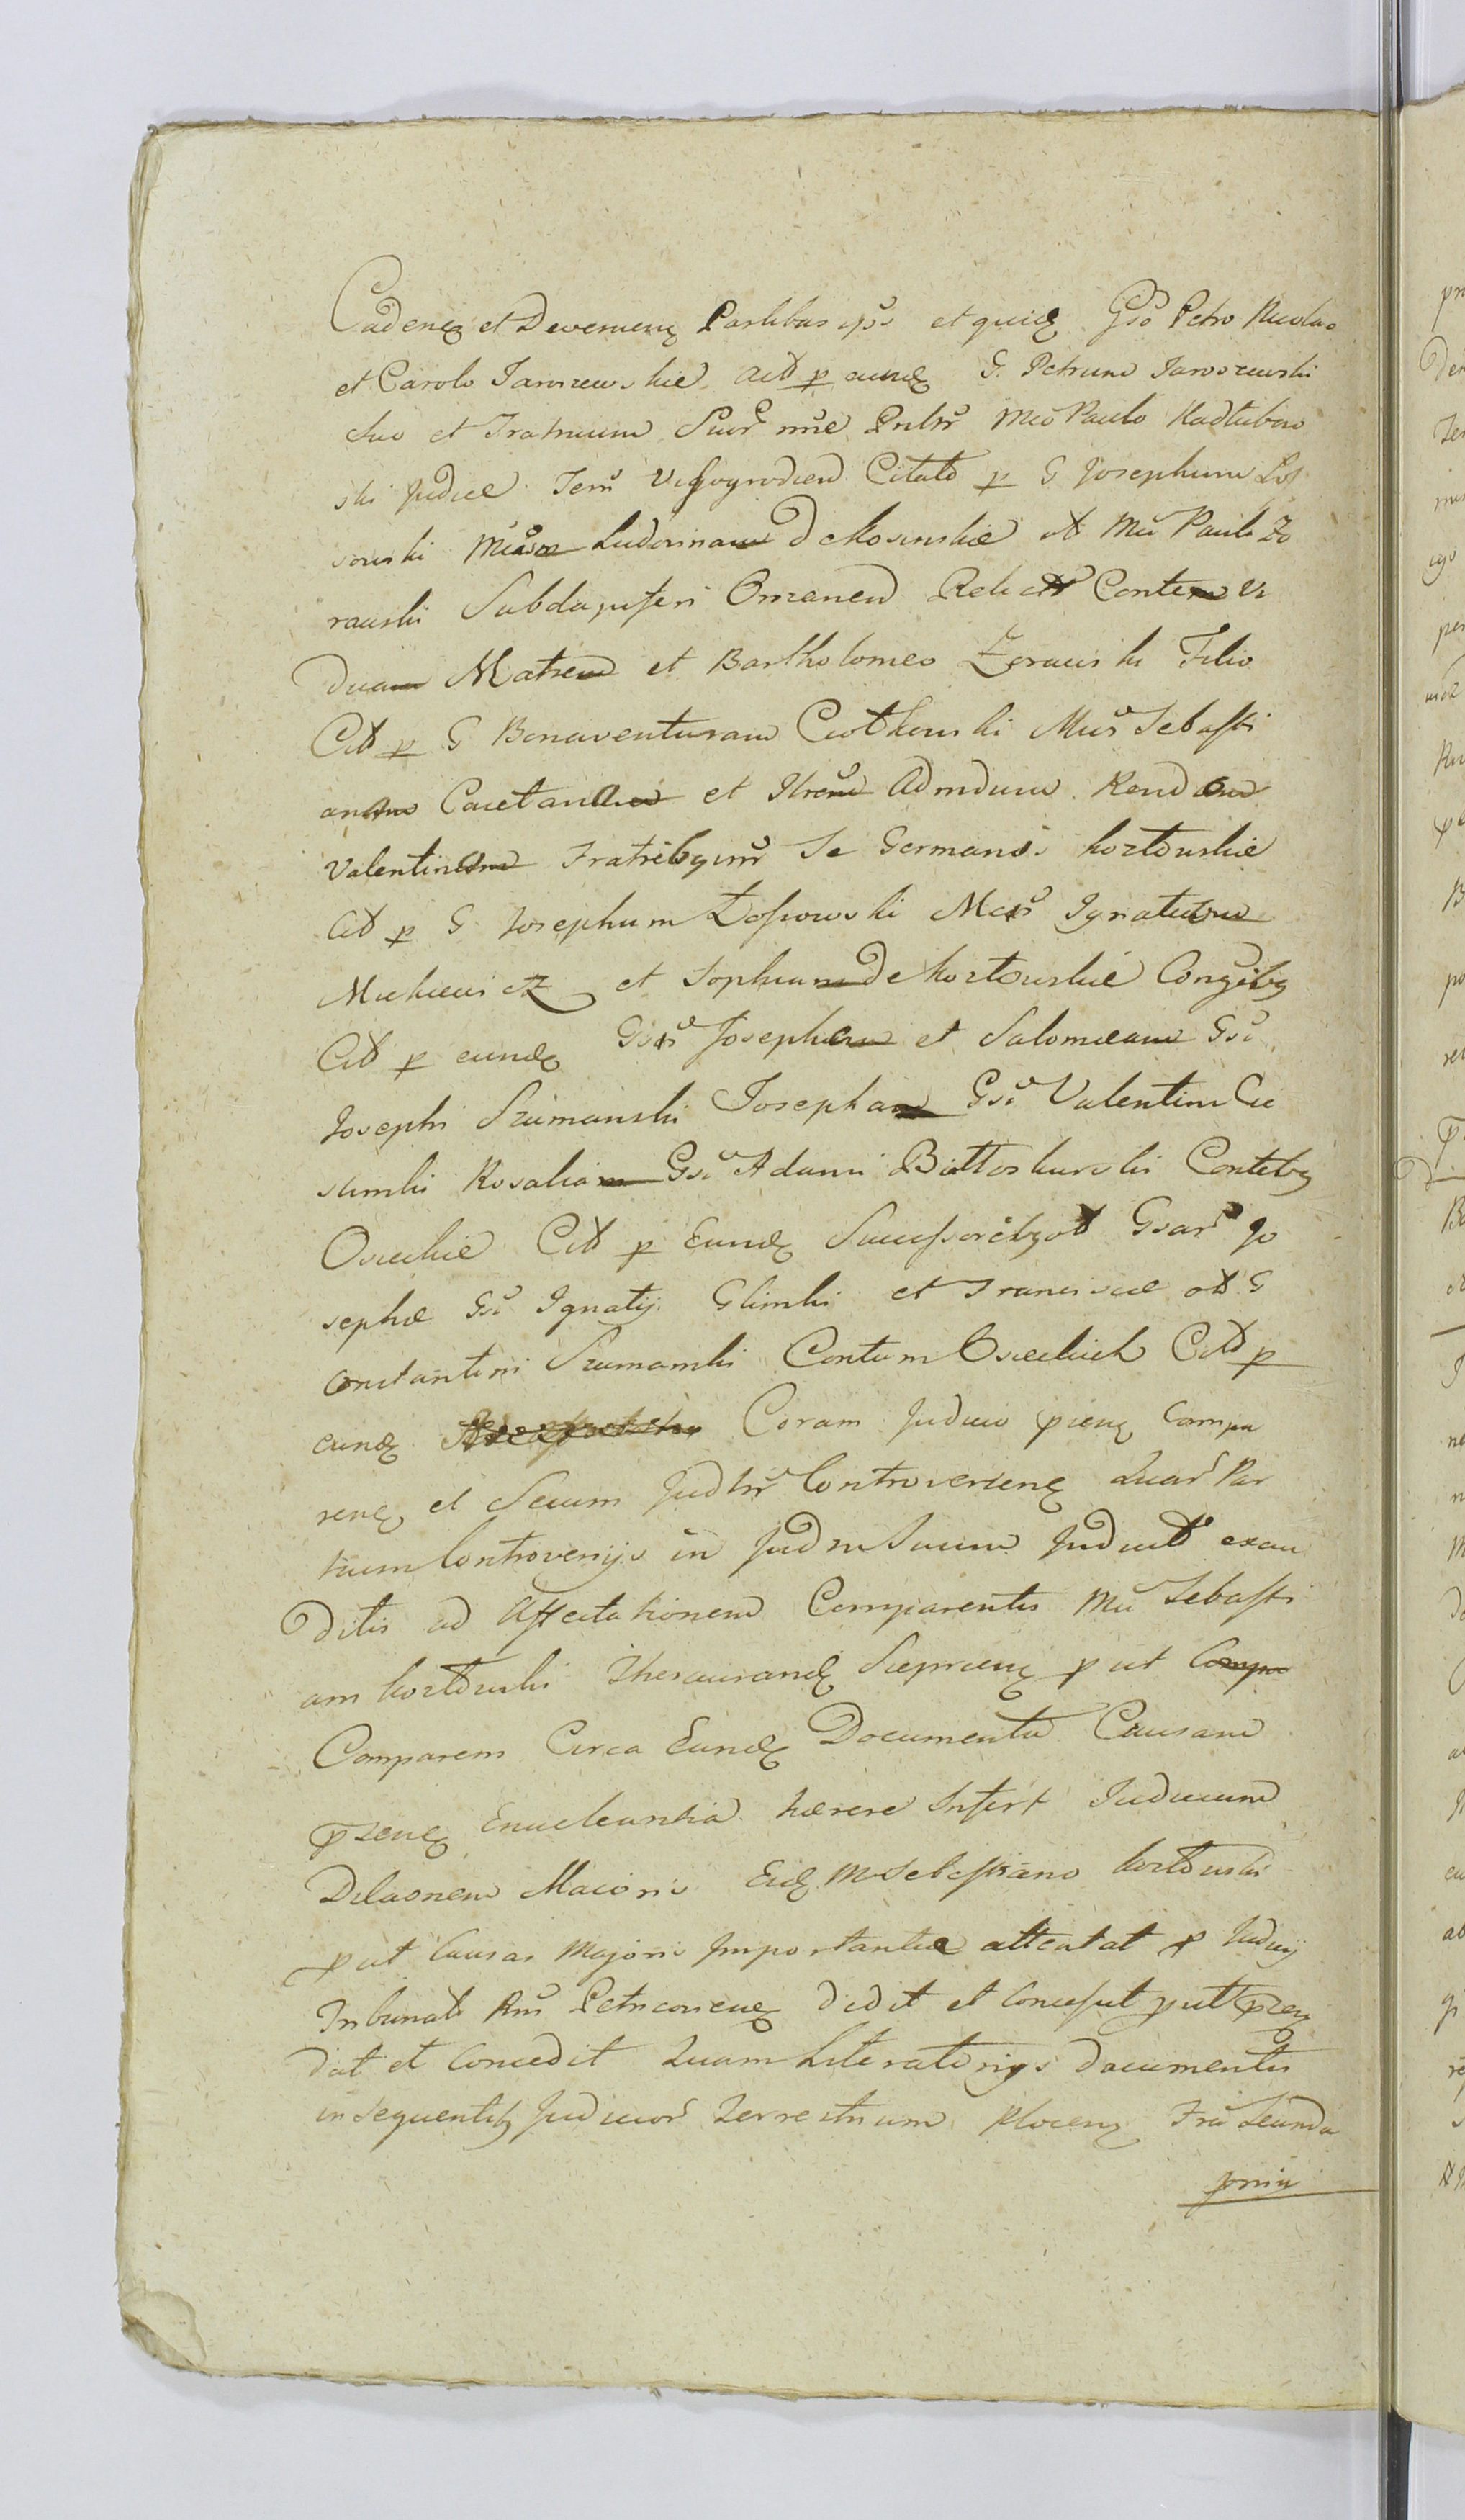 Cadenq et Deveniens Partibus ipsis et quidq Gso Petro Nicolao
et Carolo Jaroszewskie Actt p eundq G. Petrum Jaroszewski
suo et Fratruum Suor nne Pnltr Mco Paulo Kadłubow
ski Judice Terr Vissogrodien Citatt p G Josephum Los
sowski Ludovinam de Kosinskie ott Mci Pauli Zo
rawski Subdapiferi Orzanen Relictt Contem Vi
duam Matrem et Bartholomeo Zorawski Filio
Citt p G Bonaventuram Ciotkowski Mcus Sebasti
anum Caietanum et Adndum Rendum
Valentinum Fratribq inr Se Germanis koztowskie
Citt p G Josephum Łossowski Mcos Ignatium
Michiewicz et Sophiam De koztowskie Congibq
Citt p eundq Gsos Josepham et Salomeam Gsi
Josephi Szumanski Josepham Gsi Valentini Cie
slinski Rosaliam Gsi Adami Bittoskurski Contebq
Osieckie Citt p Eundq Successoribq ott Gsar Jo
sephæ Gsi Ignatij Glinski et Franciscæ ott G
Constantini Szumanski Contum Osieckich Citt p
eundq Coram Judicio psenq Compa
renq et Secum Judtr Controverienq Quar Par
tium Controversijs in Judm Suum Judultt exau
ditis ad Affectationem Comparentis Mci Sebasti
ani koztowski Thesaurandq Sieprcenq p ut Compa
Comparens Circa Eundq Documenta Causam
psenq Enucleantia hærere Infert Judicium
Dilaonem Maioris Eidq M Sebastiano koztowski
p ut Causas Majoris Importantiæ attentat p Judicij
Tribunatt Rni Petricovienq dedit et Concessit p ut psenq
dat et Concedit Quam Literatorijs documentis
insequentibq Judicior Terrestrium Plocenq Fria Seunda
pnia